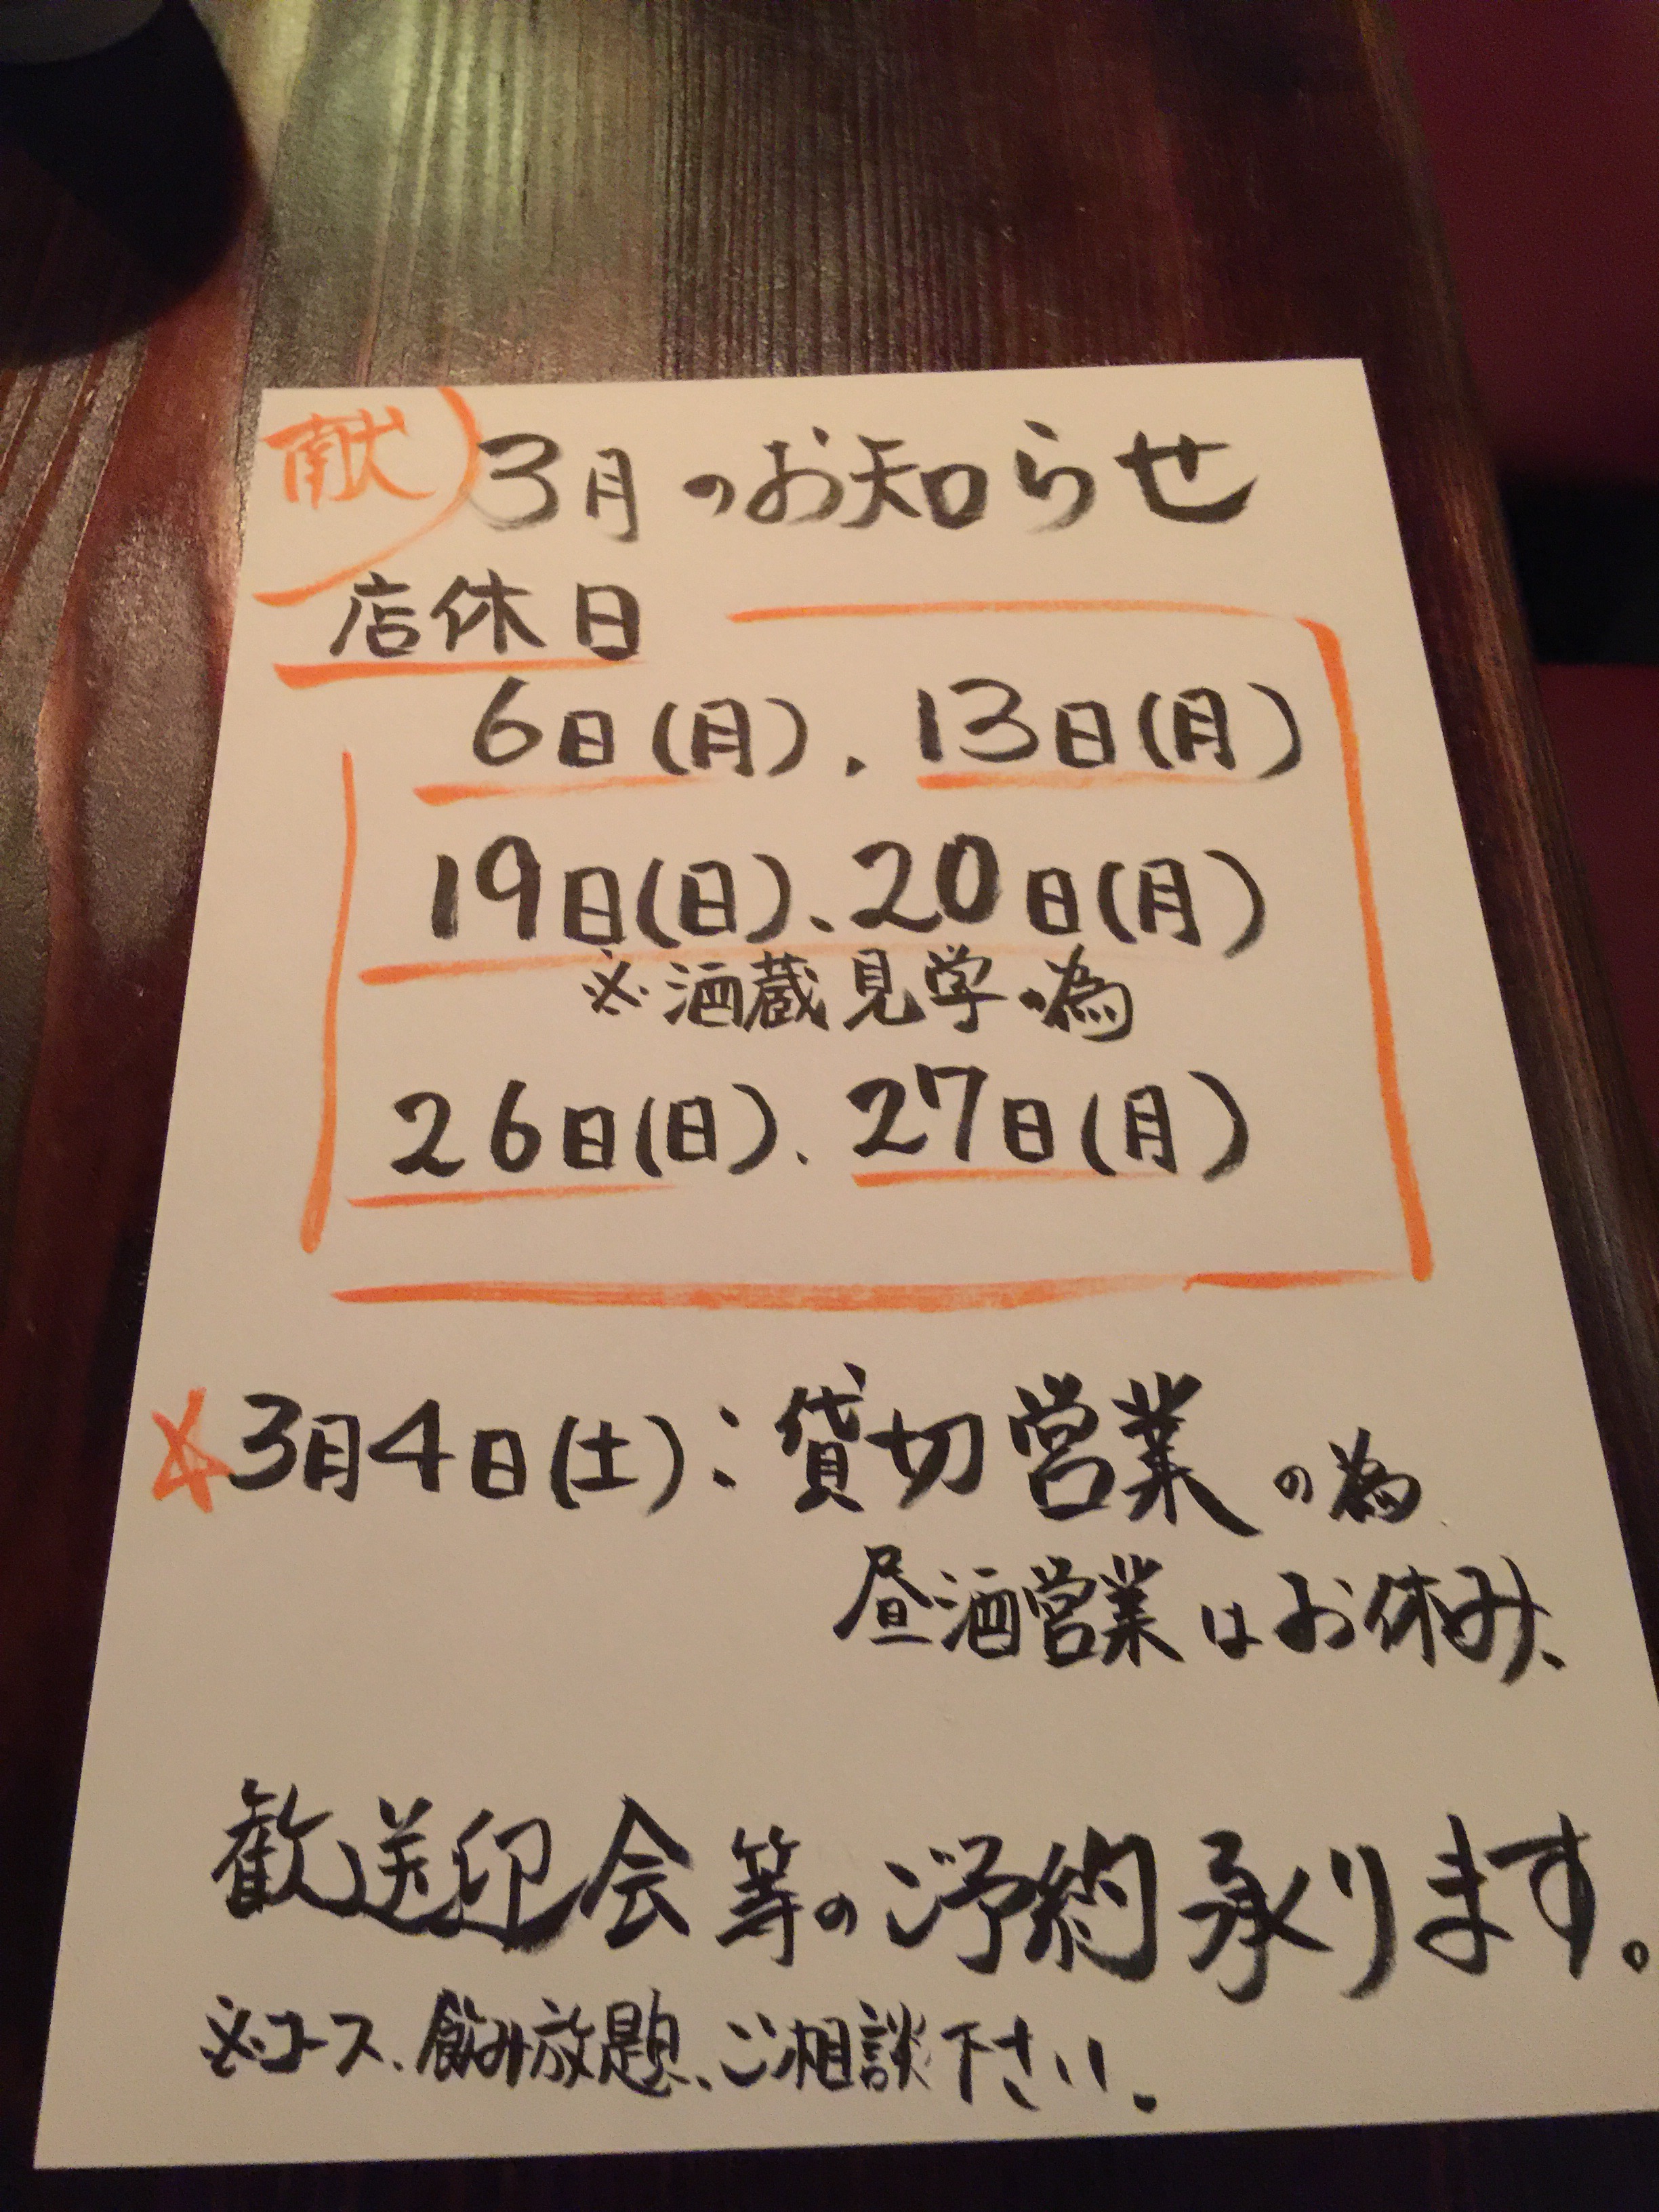 献 3月のお知らせ
店休日
6日(月)、13日(月)
19日(日)、20日(月)
※酒蔵見学の為
26日(日)、27日(月)
☆3月4日(土):貸切営業の為
昼酒営業はお休み、
歓送迎会等のご予約承ります。
※コース、飲み放題、ご相談下さい。